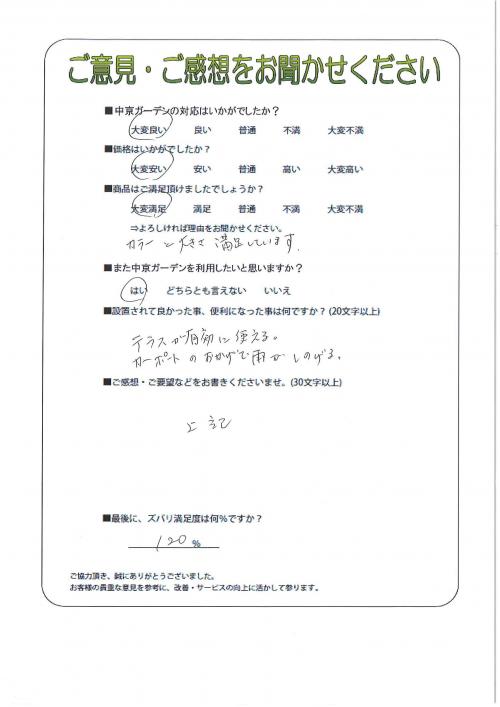 ご意見・ご感想をお聞かせください
■中京ガーデンの対応はいかがでしたか？
大変良い 良い 普通 不満 大変不満
■価格はいかがでしたか？
大変安い 安い 普通 高い 大変高い
■商品はご満足頂けましたでしょうか？
大変満足 満足 普通 不満 大変不満
⇒よろしければ理由をお聞かせください。
カラーと大きさ満足しています。
■また中京ガーデンを利用したいと思いますか？
はい どちらとも言えない いいえ
■設置されて良かった事、便利になった事は何ですか？(20文字以上)
テラスが有効に使える。
カーポートのおかげで雨がしのげる。
■ご感想・ご要望などをお書きくださいませ。(30文字以上)
上記
■最後に、ズバリ満足度は何％ですか？
120 %
ご協力頂き、誠にありがとうございました。
お客様の貴重な意見を参考に、改善・サービスの向上に活かして参ります。